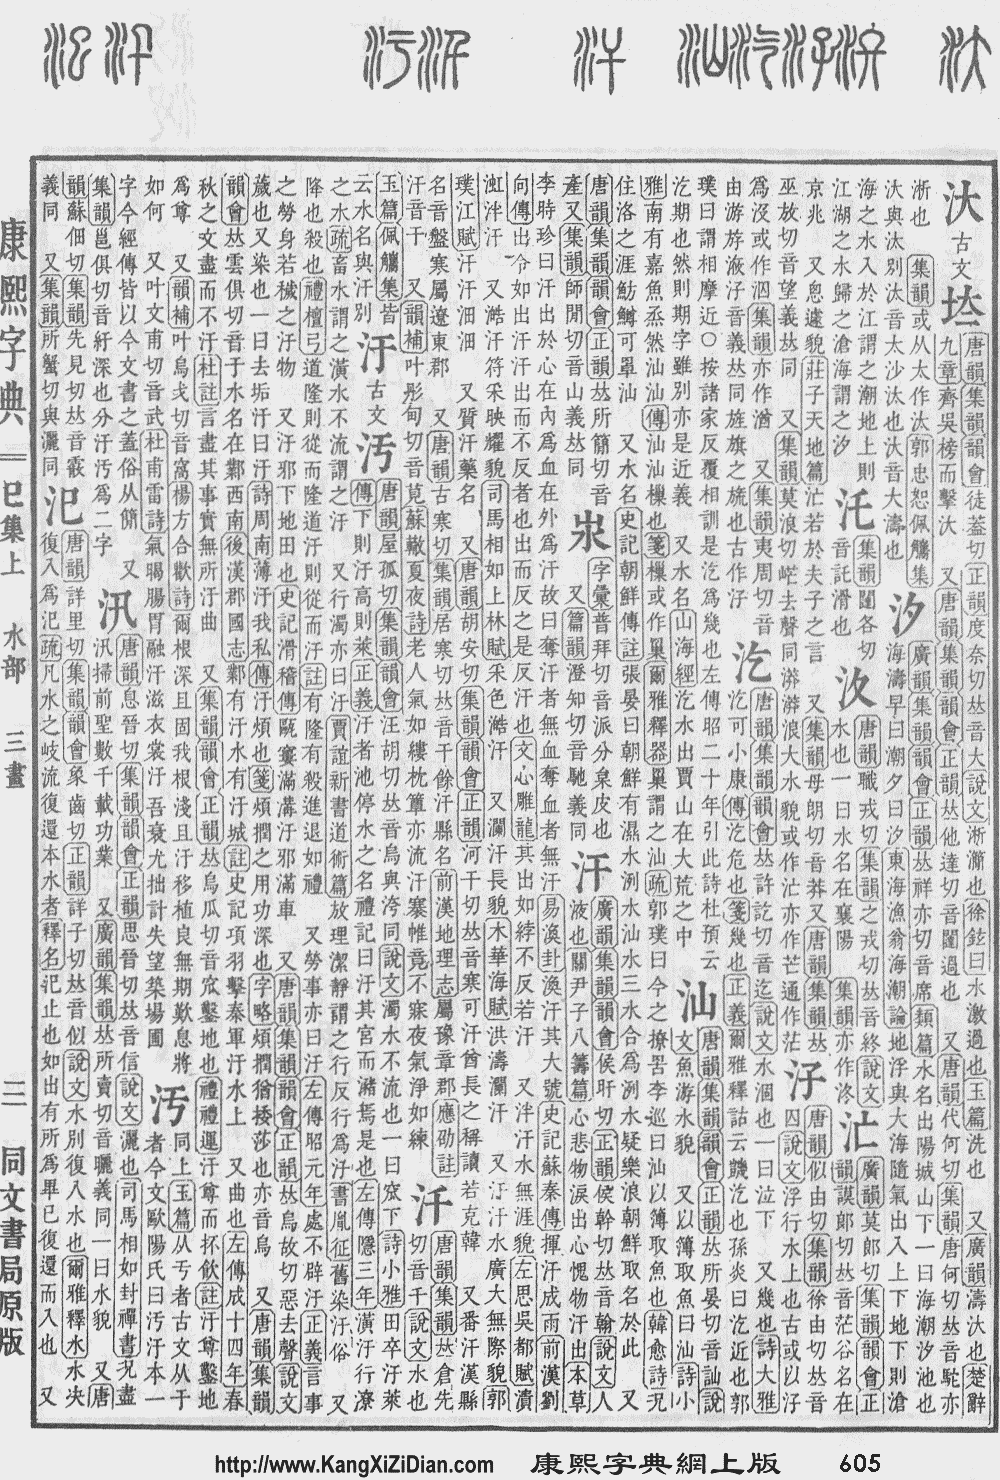 汏 古文 唐韻集韻韻會徒蓋切正韻度奈切𠀤音大說文淅灡也徐鉉曰水激過也玉篇洗也 又廣韻濤汏也楚辭
九章齊吳榜而擊汏 又唐韻集韻韻會正韻𠀤他達切音闥過也 又唐韻代何切集韻唐何切𠀤音駝亦
淅也 集韻或从太作汰郭忠恕佩觿集
汰與汏別汰音太沙汰也汏音大濤也
汐 廣韻集韻韻會正韻𠀤祥亦切音席類篇水名出陽城山下一曰海潮汐池也
海濤早曰潮夕曰汐東海漁翁海潮論地浮與大海隨氣出入上下地下則滄
海之水入於江謂之潮地上則
江湖之水歸之滄海謂之汐
汑 集韻闥各切
音託滑也
汷 唐韻職戎切集韻之戎切𠀤音終說文
水也一曰水名在襄陽 集韻亦作泈
汒 廣韻莫郎切集韻韻會正
韻謨郎切𠀤音茫谷名在
京兆 又悤遽貌莊子天地篇汒若於夫子之言 又集韻母朗切音莽又唐韻集韻𠀤
巫放切音望義𠀤同 又集韻莫浪切去聲同漭漭浪大水貌或作汒亦作芒通作茫
汓 唐韻似由切集韻徐由切𠀤音
囚說文浮行水上也古或以汓
為沒或作泅集韻亦作 又集韻夷周切音
由游斿汓音義𠀤同旌旗之旒也古作汓
汔 唐韻集韻韻會𠀤許訖切音迄說文水涸也一曰泣下 又幾也詩大雅
汔可小康傳汔危也箋幾也正義爾雅釋詁云饑汔也孫炎曰汔近也郭
璞曰謂相摩近○按諸家反覆相訓是汔為幾也左傳昭二十年引此詩杜預云
汔期也然則期字雖別亦是近義 又水名山海經汔水出賈山在大荒之中
汕 唐韻集韻韻會正韻𠀤所晏切音訕說
文魚游水貌 又以簿取魚曰汕詩小
雅南有嘉魚烝然汕汕傳汕汕樔也箋樔或作巢爾雅釋器巢謂之汕疏郭璞曰今之撩罟李巡曰汕以簿取魚也韓愈詩無
住洛之涯魴鱒可罩汕 又水名史記朝鮮傳註張晏曰朝鮮有濕水洌水汕水三水合為洌水疑樂浪朝鮮取名於此 又
唐韻集韻韻會正韻𠀤所簡切音
產又集韻師閒切音山義𠀤同
𣱵 字彙普拜切音派分𣱵皮也
又篇韻澄知切音馳義同
汗 廣韻集韻韻會侯旰切正韻侯幹切𠀤音翰說文人
液也關尹子八籌篇心悲物淚出心愧物汗出本草
李時珍曰汗出於心在內為血在外為汗故曰奪汗者無血奪血者無汗易渙卦渙汗其大號史記蘇秦傳揮汗成雨前漢劉
向傳出令如出汗汗出而不反者也出而反之是反汗也文心雕龍其出如綍不反若汗 又泮汗水無涯貌左思吳都賦濆
虹泮汗 又澔汗符采映耀貌司馬相如上林賦采色澔汗 又瀾汗長貌木華海賦洪濤瀾汗 又汙汗水廣大無際貌郭
璞江賦汗汗沺沺 又質汗藥名 又唐韻胡安切集韻韻會正韻河干切𠀤音寒可汗酋長之稱讀若克韓 又番汗漢縣
名音盤寒屬遼東郡 又唐韻古寒切集韻居寒切𠀤音干餘汗縣名前漢地理志屬豫章郡應劭註
汗音干 又韻補叶形甸切音莧蘇轍夏夜詩老人氣如縷枕簟亦流汗褰帷竟不寐夜氣淨如練
汘 唐韻集韻𠀤倉先
切音千說文水也
玉篇佩觿集皆
云水名與汙別
汙 古文 汚 唐韻屋孤切集韻韻會汪胡切𠀤音烏與洿同說文濁水不流也一曰窊下詩小雅田卒汙萊
傳下則汙高則萊正義汙者池停水之名禮記曰汙其宮而瀦焉是也左傳隱三年潢汙行潦
之水疏畜水謂之潢水不流謂之汙 又行濁亦曰汙賈誼新書道術篇放理潔靜謂之行反行為汙書胤征舊染汙俗 又
降也殺也禮檀弓道隆則從而隆道汙則從而汙註有隆有殺進退如禮 又勞事亦曰汙左傳昭元年處不辟汙正義言事
之勞身若穢之汙物 又汙邪下地田也史記滑稽傳甌窶滿溝汙邪滿車 又唐韻集韻韻會正韻𠀤烏故切惡去聲說文
薉也又染也一曰去垢汙曰汙詩周南薄汙我私傳汙煩也箋煩撋之用功深也字略煩撋猶捼莎也亦音烏 又唐韻集韻
韻會𠀤雲俱切音于水名在鄴西南後漢郡國志鄴有汙水有汙城註史記項羽擊秦軍汙水上 又曲也左傳成十四年春
秋之文盡而不汙杜註言盡其事實無所汙曲 又集韻韻會正韻𠀤烏瓜切音窊鑿地也禮禮運汙尊而抔飲註汙尊鑿地
為尊 又韻補叶烏戈切音窩楊方合歡詩爾根深且固我根淺且汙移植良無期歎息將
如何 又叶文甫切音武杜甫雷詩氣暍腸胃融汗滋衣裳汙吾衰尤拙計失望築場圃
汚 同上玉篇从亐者古文从于
者今文歐陽氏曰汚汙本一
字今經傳皆以今文書之蓋俗从簡 又
集韻邕俱切音紆深也分汙汚為二字
汛 唐韻息晉切集韻韻會正韻思晉切𠀤音信說文灑也司馬相如封禪書況盡
汛掃前聖數千載功業 又廣韻集韻𠀤所賣切音曬義同一曰水貌 又唐
韻蘇佃切集韻先見切𠀤音霰
義同 又集韻所蟹切與灑同
汜 唐韻詳里切集韻韻會象齒切正韻詳子切𠀤音似說文水別復入水也爾雅釋水水決
復入為汜疏凡水之岐流復還本水者釋名汜止也如出有所為畢已復還而入也 又
康熙字典
巳集上 水部 三畫
三
同文書局原版
http://www.KangXiZiDian.com 康熙字典網上版 605